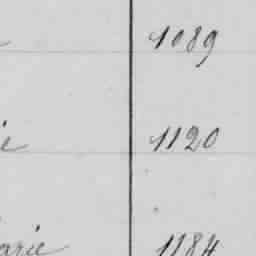 1089
1120
arie 1184